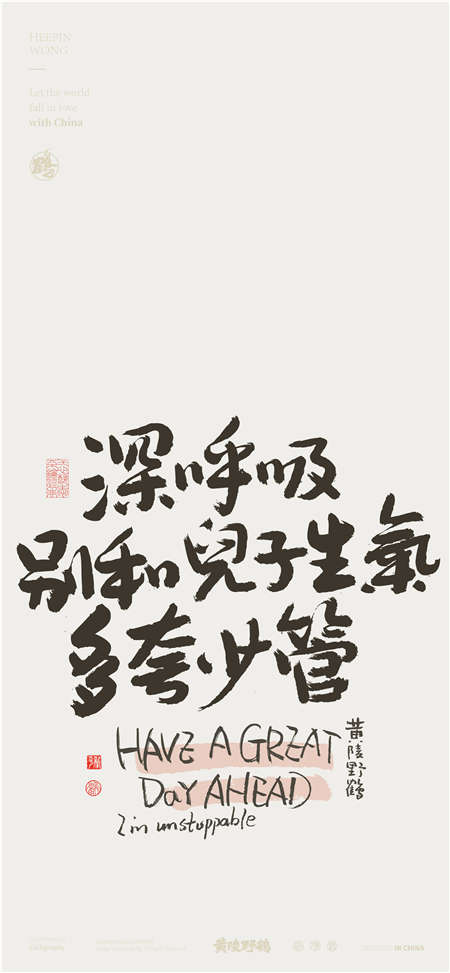 HEEPIN
WONG
Let the world
fall in love
with China
深呼吸
别和兒子生氣
多夸少管
HAVE A GREAT
DaY AHEAD
I'm unstoppable
黄陵野鶴
黄陵野鶴
IN CHINA